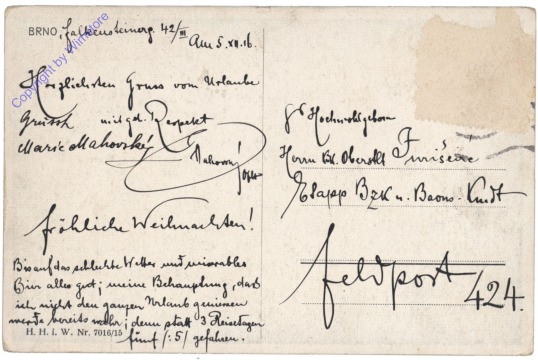 BRNO, Falkensteinerg. 42/III
Am 5. XII. 16.
Copyright by Winstore
Herzlichsten Gruss vom Urlaube
Grüsst mit gt. Respekt
Marie Mahovský
fröhliche Weihnachten!
Bis auf das schlechte Wetter und miserables
Bier alles gut; meine Behauptung, daß
ich nicht den ganzen Urlaub geniessen
werde bereits wahr; denn statt 3 Reisetagen
fünf /:5:/ gefahren.
H. H. i. W. Nr. 7016/15
Hochwohlgeboren
Herrn k.k. Oberstlt
Etapp Bzk u. Baons-Kmdt
Feldpost 424.